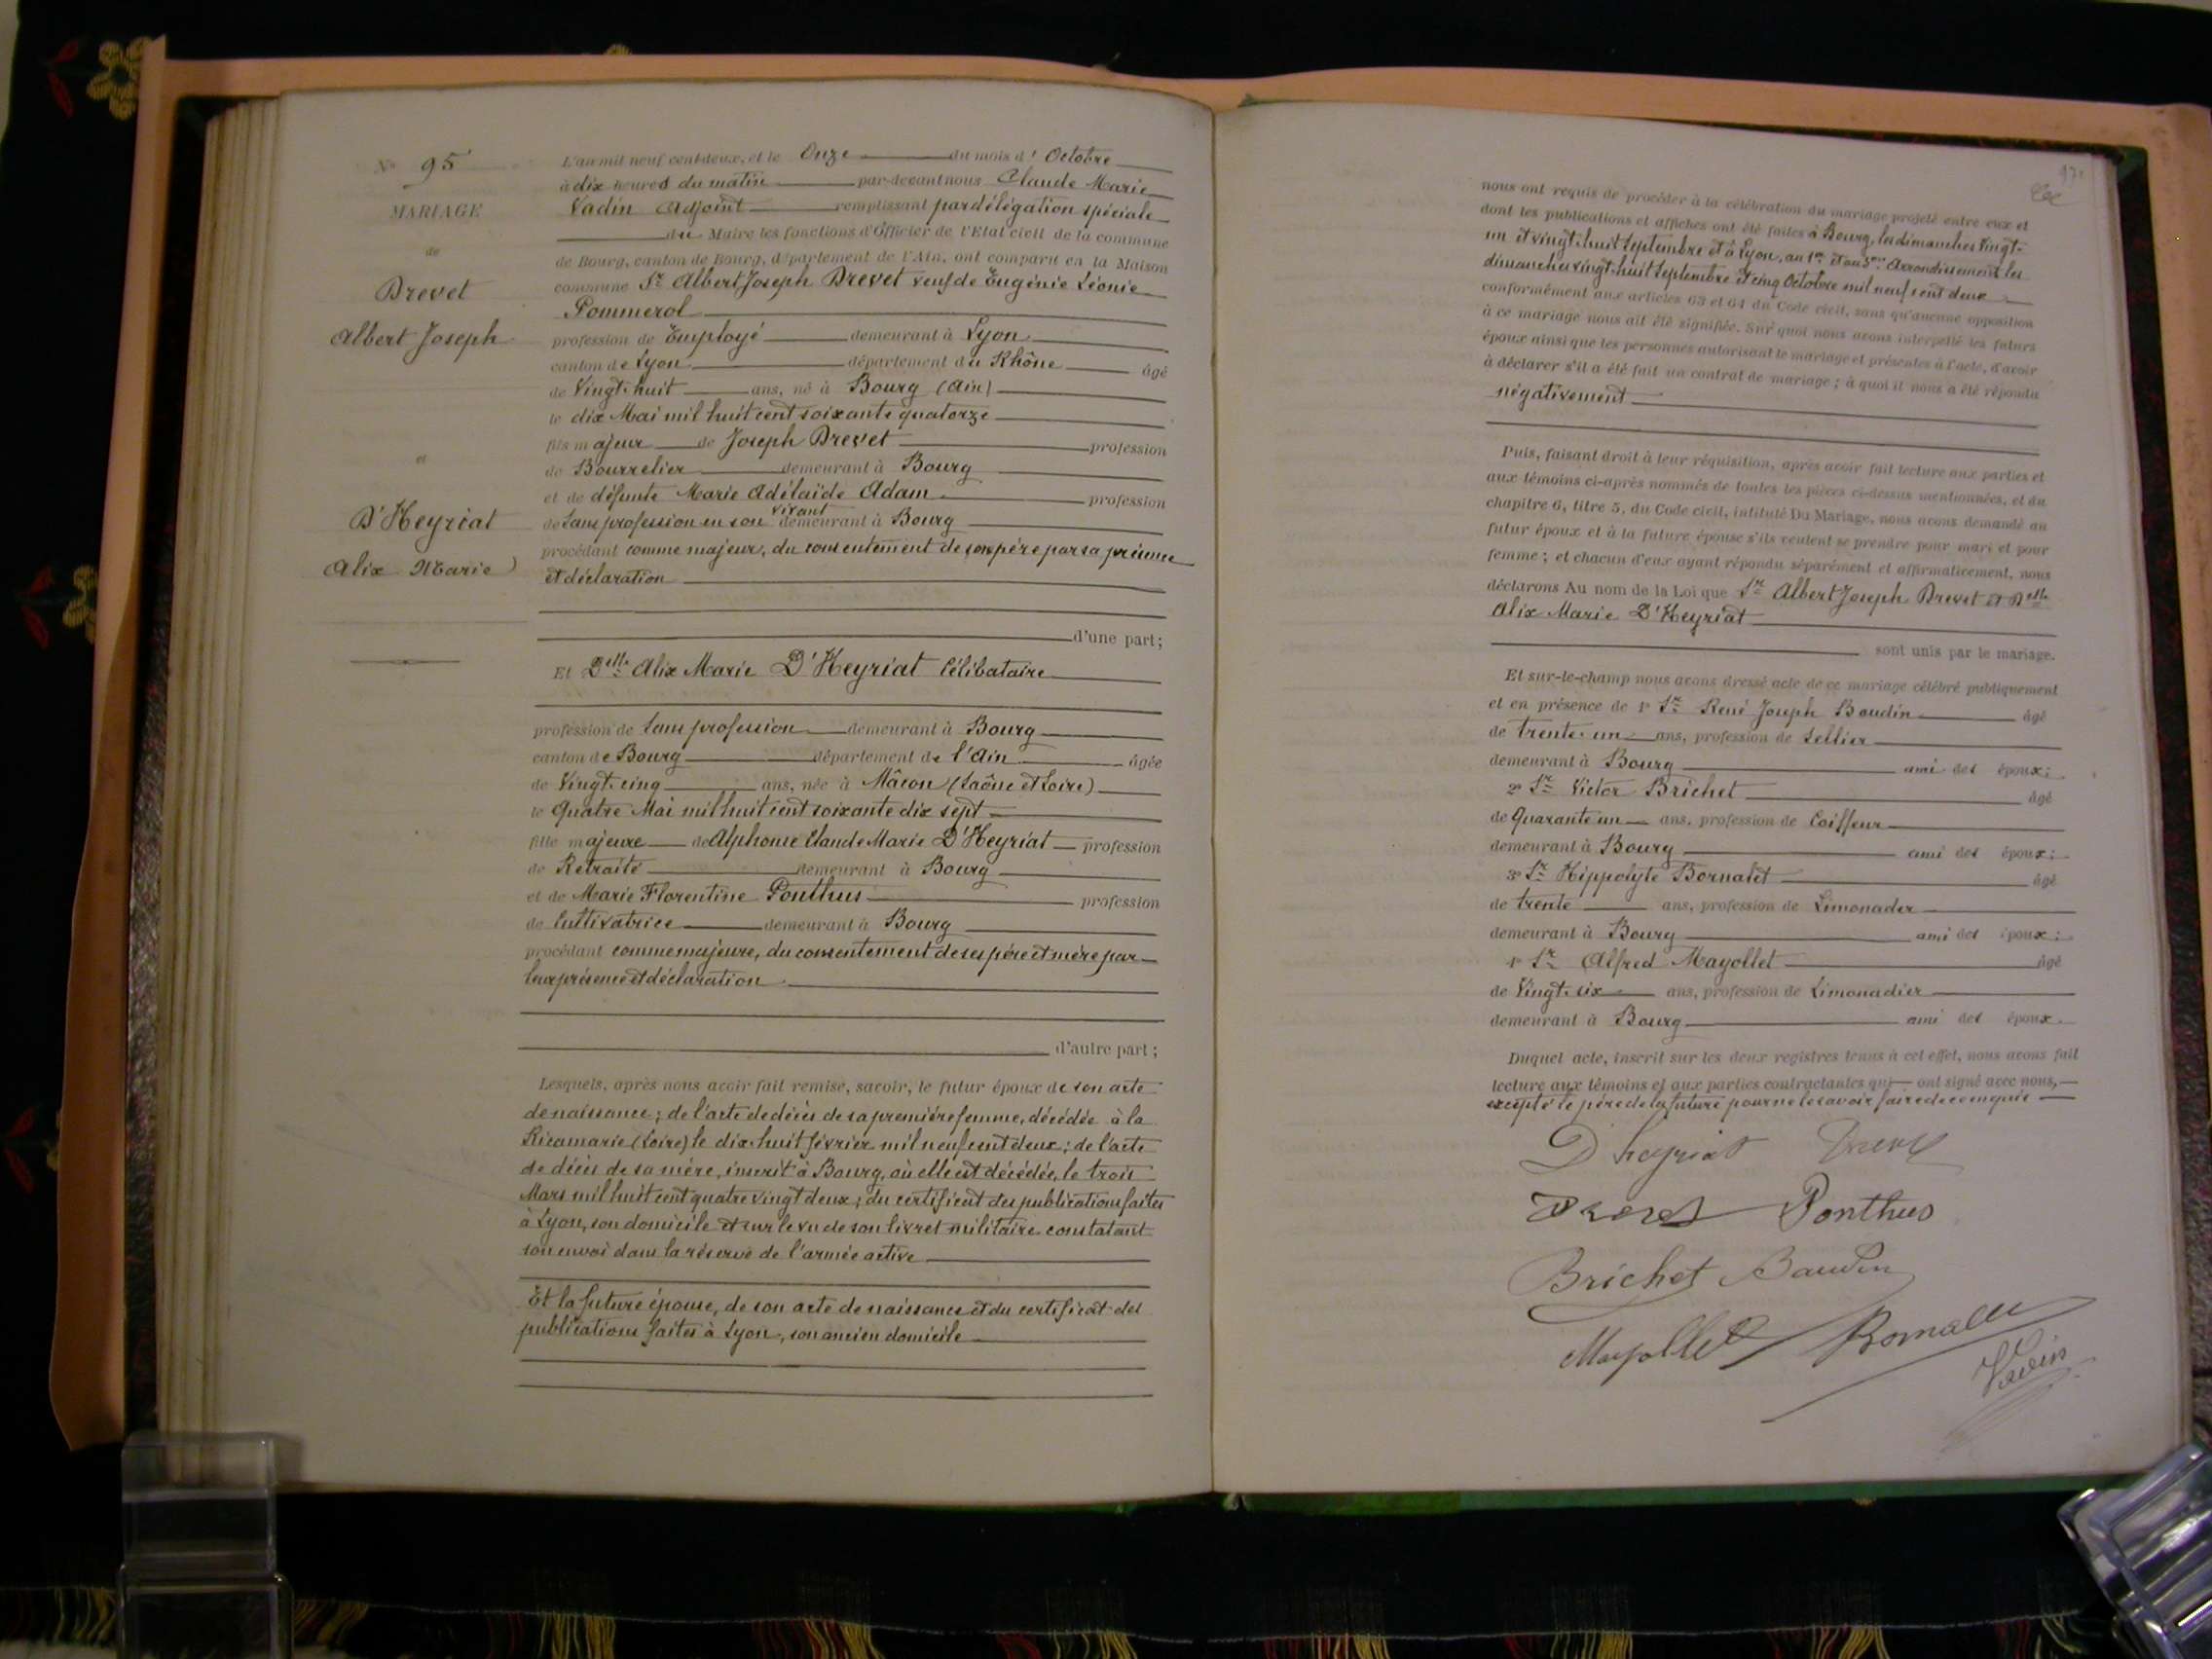 N° 95
MARIAGE
de
Drevet
Albert Joseph
et
D'Heyriat
Alix Marie
L'an mil neuf cent-deux, et le Onze du mois d'Octobre
à dix heures du matin par-devant nous Claude Marie
Vadin Adjoint remplissant par délégation spéciale
du Maire les fonctions d'Officier de l'Etat civil de la commune
de Bourg, canton de Bourg, département de l'Ain, ont comparu en la Maison
commune Sr Albert Joseph Drevet veuf de Eugénie Léonie
Pommerol
profession de Employé demeurant à Lyon
canton de Lyon département du Rhône âgé
de Vingt-huit ans, né à Bourg (Ain)
le dix Mai mil huit cent soixante quatorze
fils majeur de Joseph Drevet profession
de Bourrelier demeurant à Bourg
et de défunte Marie Adélaïde Adam profession
de Sans profession en son vivant demeurant à Bourg
procédant comme majeur, du consentement de son père par sa présence
et déclaration
d'une part;
Et Delle Alix Marie D'Heyriat Célibataire
profession de Sans profession demeurant à Bourg
canton de Bourg département de l'Ain âgée
de Vingt-cinq ans, née à Mâcon (Saône et Loire)
le Quatre Mai mil huit cent soixante dix sept
fille majeure de Alphonse Claude Marie D'Heyriat profession
de Retraité demeurant à Bourg
et de Marie Florentine Ponthus profession
de Cultivatrice demeurant à Bourg
procédant comme majeure, du consentement de ses père et mère par
leur présence et déclaration
d'autre part;
Lesquels, après nous avoir fait remise, savoir, le futur époux de son acte
de naissance; de l'acte de décès de sa première femme, décédée à la
Ricamarie (Loire) le dix-huit février mil neuf cent deux; de l'acte
de décès de sa mère, inscrit à Bourg, où elle est décédée, le trois
Mars mil huit cent quatre vingt deux; du certificat des publications faites
à Lyon, son domicile et sur le vu de son livret militaire constatant
son envoi dans la réserve de l'armée active
Et la future épouse, de son acte de naissance et du certificat des
publications faites à Lyon, son ancien domicile
nous ont requis de procéder à la célébration du mariage projeté entre eux et
dont les publications et affiches ont été faites à Bourg, les dimanches vingt-
un et vingt-huit Septembre et à Lyon, au 1er et au 3me Arrondissement les
dimanches vingt-huit Septembre et cinq Octobre mil neuf cent deux
conformément aux articles 63 et 64 du Code civil, sans qu'aucune opposition
à ce mariage nous ait été signifiée. Sur quoi nous avons interpellé les futurs
époux ainsi que les personnes autorisant le mariage et présentes à l'acte, d'avoir
à déclarer s'il a été fait un contrat de mariage; à quoi il nous a été répondu
négativement
Puis, faisant droit à leur réquisition, après avoir fait lecture aux parties et
aux témoins ci-après nommés de toutes les pièces ci-dessus mentionnées, et du
chapitre 6, titre 5, du Code civil, intitulé Du Mariage, nous avons demandé au
futur époux et à la future épouse s'ils veulent se prendre pour mari et pour
femme; et chacun d'eux ayant répondu séparément et affirmativement, nous
déclarons Au nom de la Loi que Sr Albert Joseph Drevet et Delle
Alix Marie D'Heyriat
sont unis par le mariage.
Et sur-le-champ nous avons dressé acte de ce mariage célébré publiquement
et en présence de 1° Sr René Joseph Baudin âgé
de trente-un ans, profession de Sellier
demeurant à Bourg ami des époux;
2° Sr Victor Brichet âgé
de Quarante un ans, profession de Coiffeur
demeurant à Bourg ami des époux;
3° Sr Hippolyte Bornalet âgé
de trente ans, profession de Limonader
demeurant à Bourg ami des époux;
4° Sr Alfred Mayollet âgé
de Vingt-six ans, profession de Limonadier
demeurant à Bourg ami des époux.
Duquel acte, inscrit sur les deux registres tenus à cet effet, nous avons fait
lecture aux témoins et aux parties contractantes qui ont signé avec nous,
excepté le père de la future pour ne le savoir faire de ce enquis
D'heyriat Drevet
Drevet Ponthus
Brichet Baudin
Mayollet Bornalet
Vadin